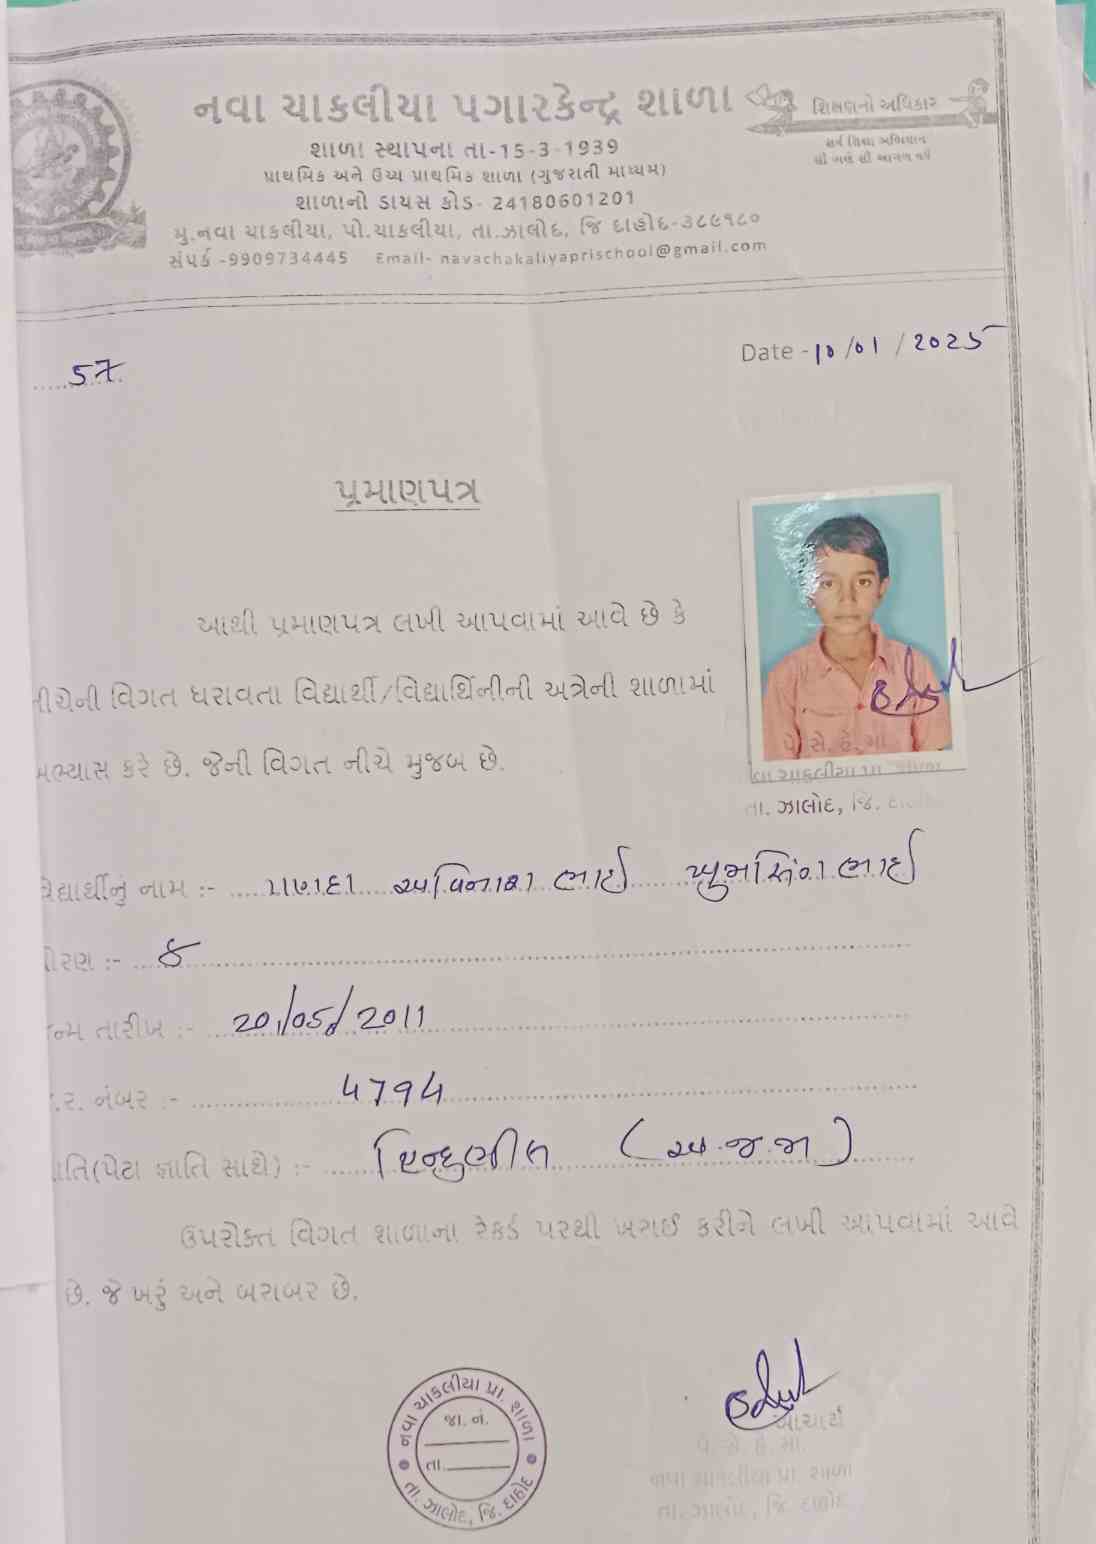 નવા ચાકલીયા પગારકેન્દ્ર શાળા
શિક્ષણનો અધિકાર
સર્વ શિક્ષા અભિયાન
સૌ ભણે સૌ આગળ વધે
શાળા સ્થાપના તા-15-3-1939
પ્રાથમિક અને ઉચ્ચ પ્રાથમિક શાળા (ગુજરાતી માધ્યમ)
શાળાનો ડાયસ કોડ- 24180601201
મુ.નવા ચાકલીયા, પો.ચાકલીયા, તા.ઝાલોદ, જિ દાહોદ-૩૮૯૧૮૦
સંપર્ક -9909734445 Email- navachakaliyaprischool@gmail.com
57
Date - 10/01/2025
પ્રમાણપત્ર
આથી પ્રમાણપત્ર લખી આપવામાં આવે છે કે
નીચેની વિગત ધરાવતા વિદ્યાર્થી/વિદ્યાર્થિનીની અત્રેની શાળામાં
અભ્યાસ કરે છે. જેની વિગત નીચે મુજબ છે.
પે. સે. હે. મા.
નવા ચાકલીયા પ્રા. શાળા
તા. ઝાલોદ, જિ. દાહોદ
વિદ્યાર્થીનું નામ :- પણદા અવિનાશભાઈ ખુમસિંગભાઈ
ધોરણ :- ૪
જન્મ તારીખ :- 20/05/2011
જ.ર. નંબર :- 4794
જાતિ(પેટા જ્ઞાતિ સાથે) :- હિન્દુભીલ (અ.જ.જા)
ઉપરોક્ત વિગત શાળાના રેકર્ડ પરથી ખરાઈ કરીને લખી આપવામાં આવે
છે. જે ખરું અને બરાબર છે.
નવા ચાકલીયા પ્રા. શાળા
જા. નં.
તા.
તા. ઝાલોદ, જિ. દાહોદ
આચાર્ય
પે. સે. હે. મા.
નવા ચાકલીયા પ્રા. શાળા
તા. ઝાલોદ, જિ. દાહોદ